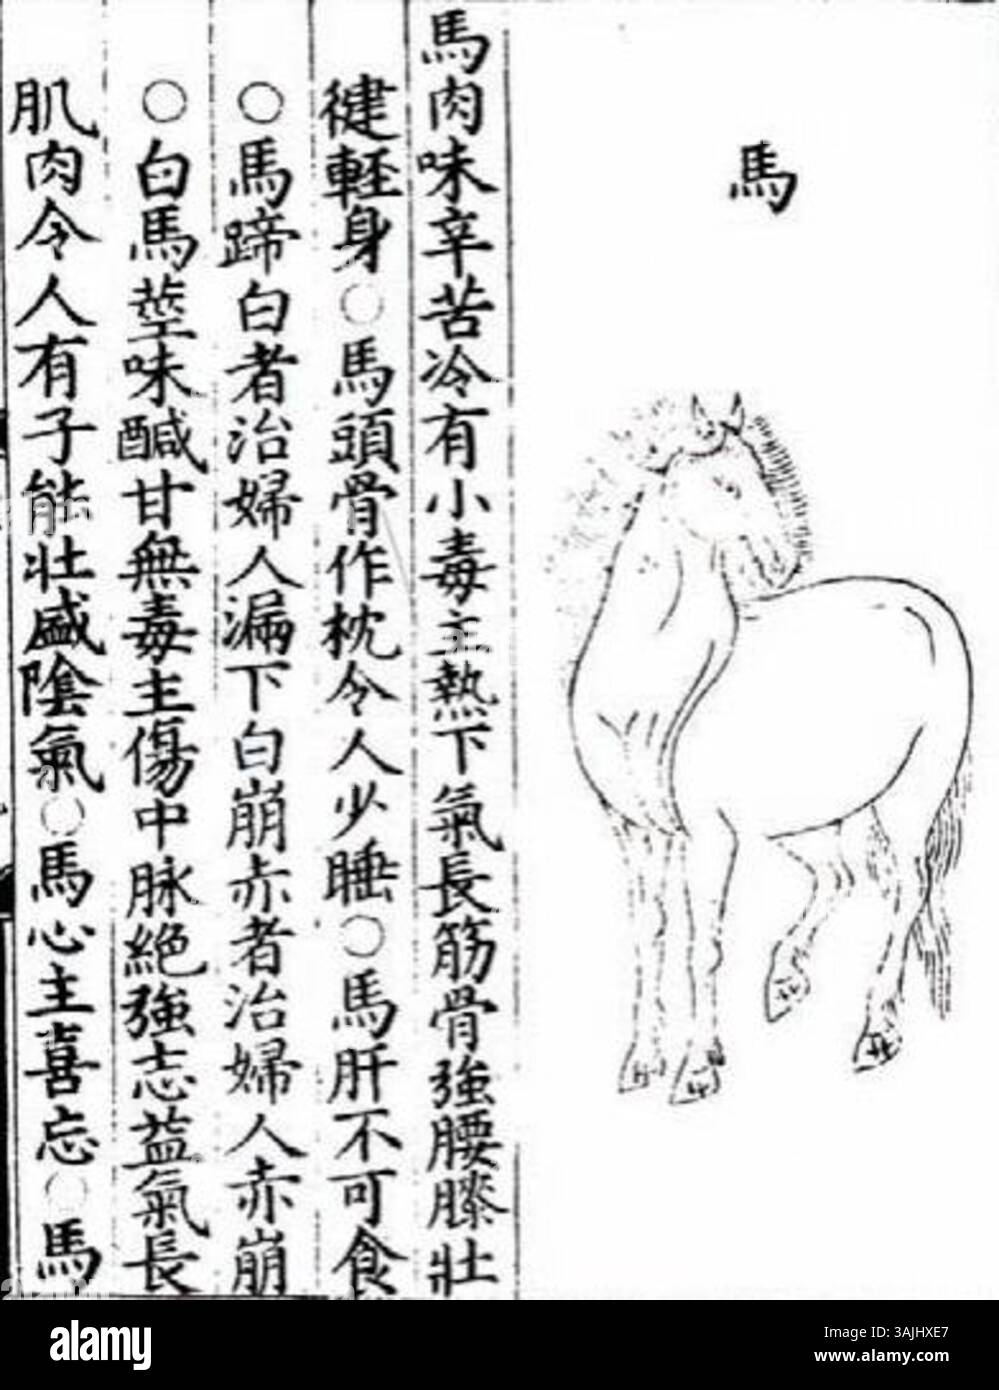 馬
馬肉味辛苦冷有小毒主熱下氣長筋骨強腰膝壯
健輕身○馬頭骨作枕令人少睡○馬肝不可食
○馬蹄白者治婦人漏下白崩赤者治婦人赤崩
○白馬莖味鹹甘無毒主傷中脉絶強志益氣長
肌肉令人有子能壯盛陰氣○馬心主喜忘○馬
alamy
Image ID: 3AJHXE7
www.alamy.com